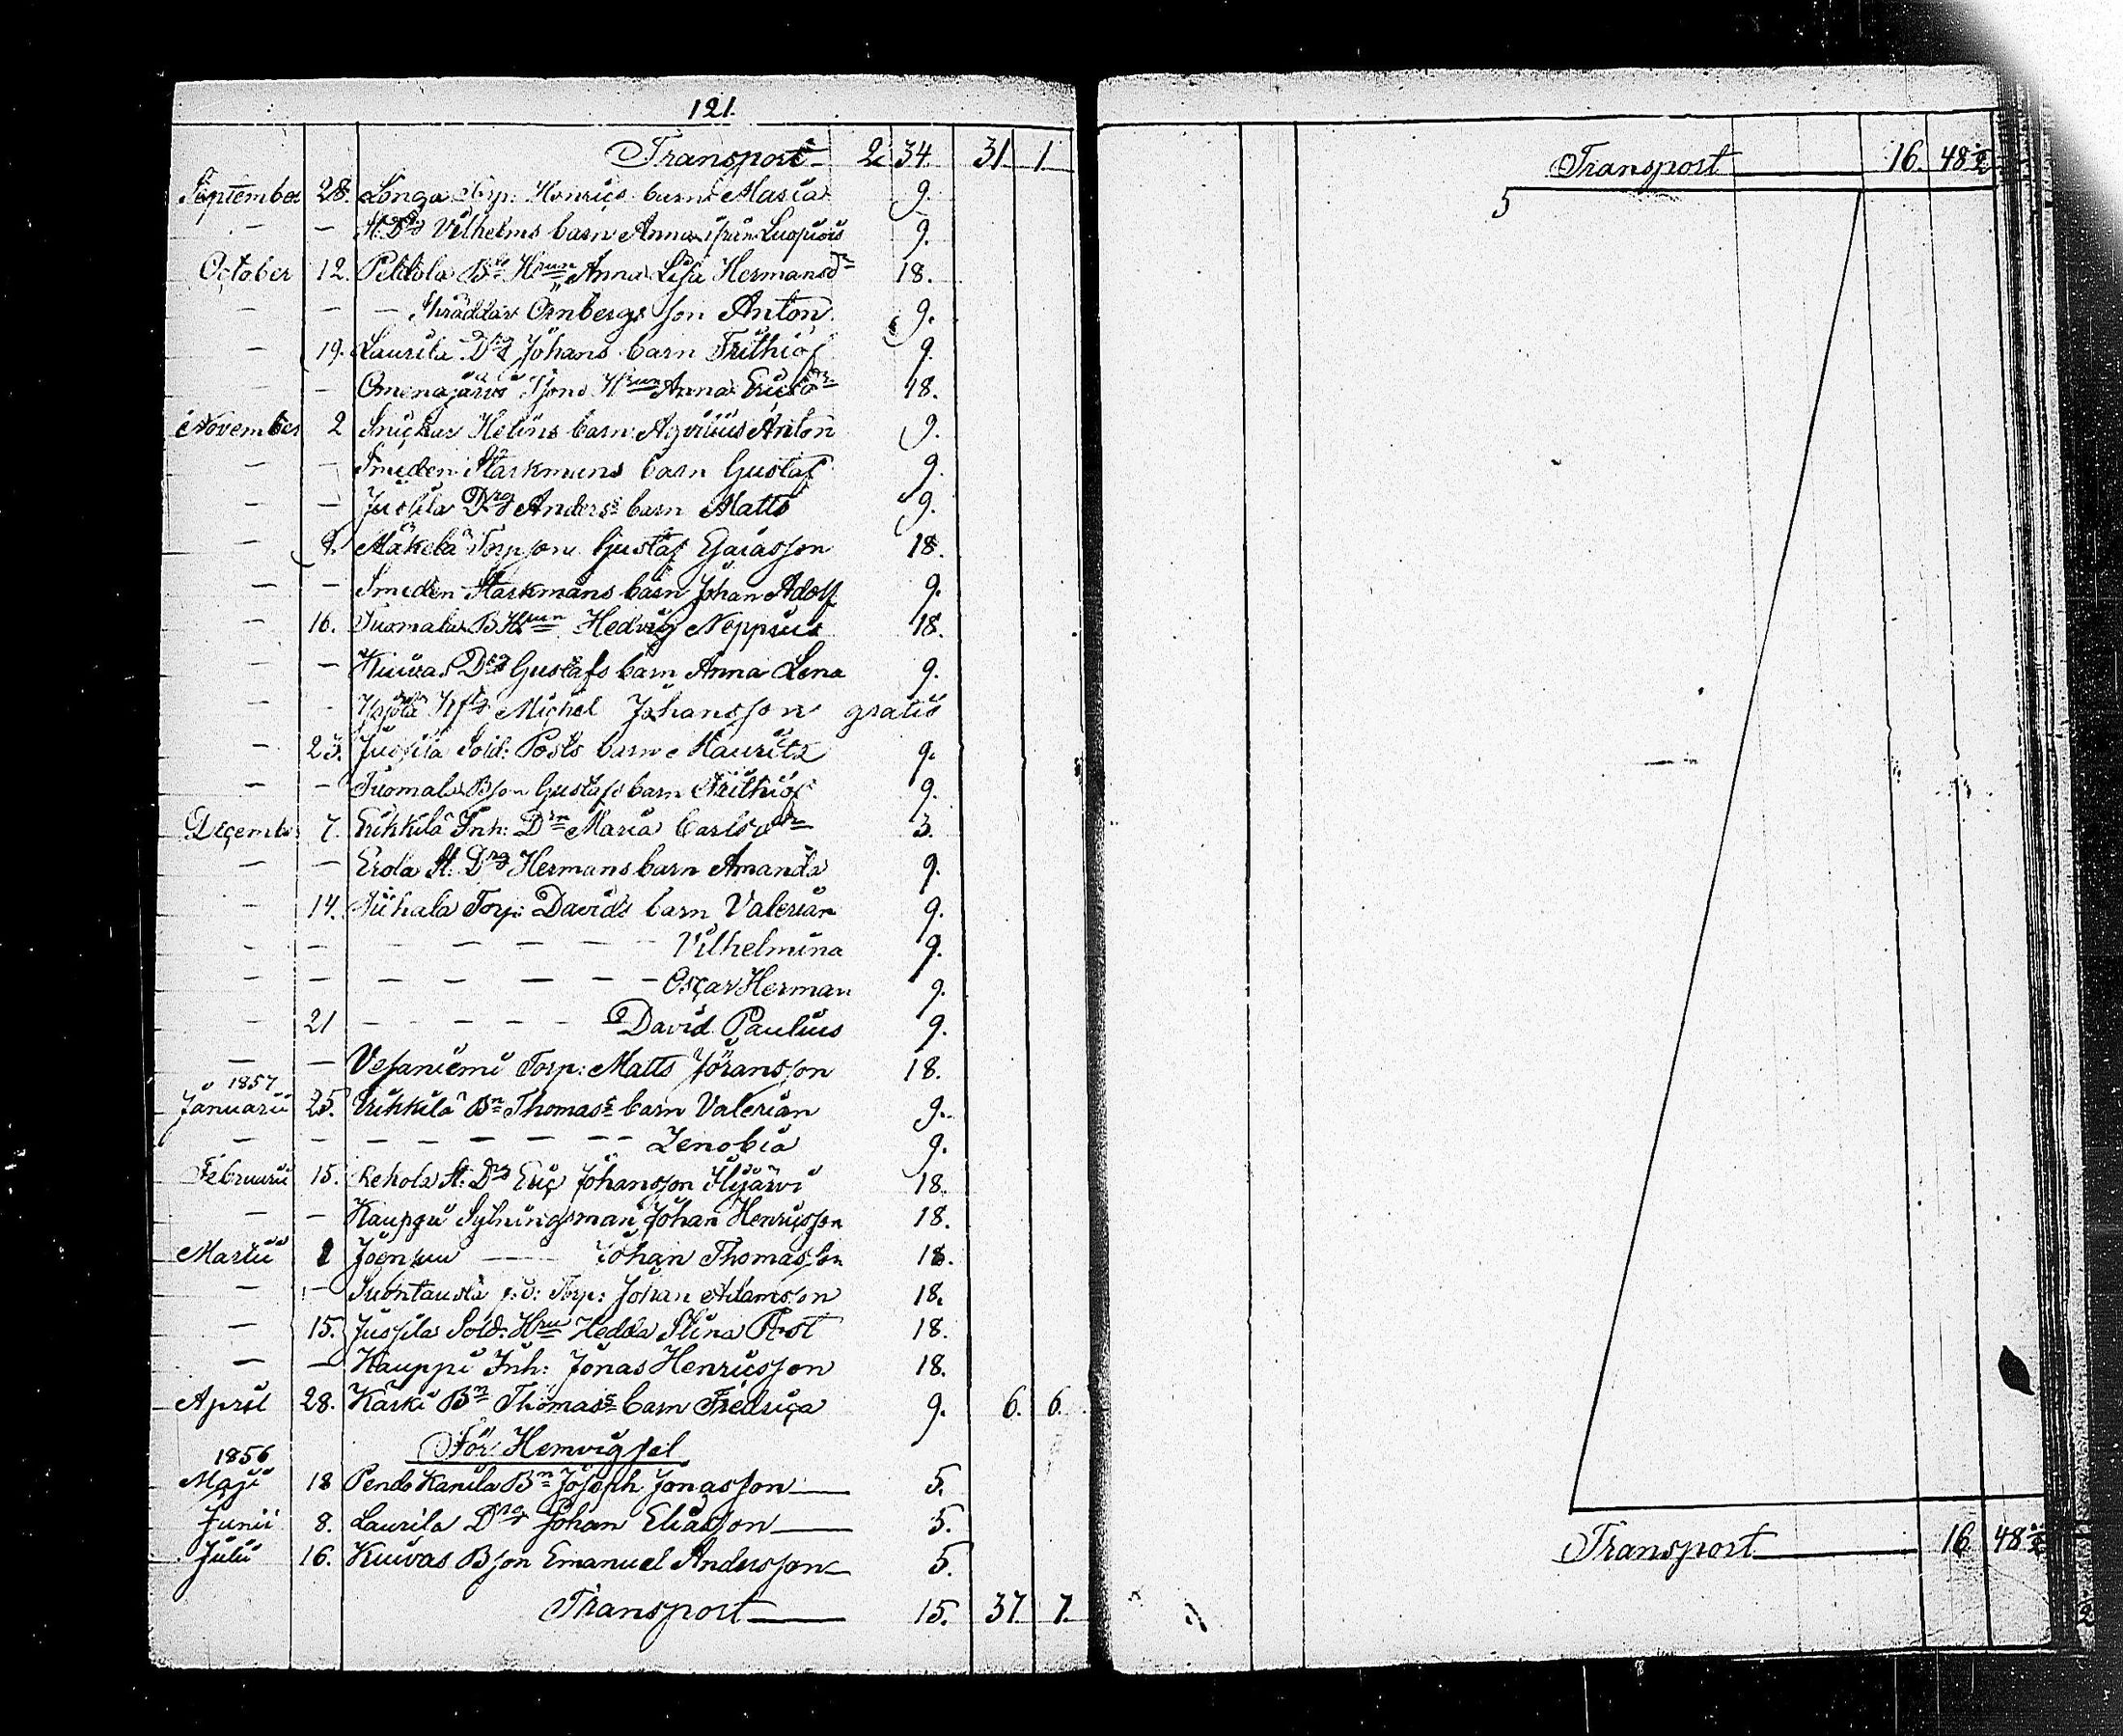 121.
Transport 2 34 31 1
September 28. Longa Torp: Henrics barn Maria 9.
— — St. Drg Vilhelms barn Anna ifrån Luopiois 9.
October 12. Peltola Bde Hrun Anna Lisa Hermansdr 18.
— — — Skräddar Ornbergs son Anton 9.
— 19. Laurila Drg Johans barn Frithiof 9.
— — Omenajärvi Sjons Hrun Anna Ericsdr 18.
November 2 Snickar Helins barn Anton 9.
— — Smeden Starkmans barn Gustaf 9.
— — Jussila Drg Anders barn Matts 9.
— 9. Mäkelä Torpson Gustaf Esaiasson 18.
— — Smeden Starkmans barn Johan Adolf 9.
— 16. Tuomala B Hrun Hedvig 18.
— — Kuivas Drg Gustafs barn Anna Lena 9.
— — Michel Johansson gratis
— 23. Jussila Sold: Posts barn Mauritz 9.
— — Tuomala Bson Gustafs barn Frithiof 9.
December 7. Erikkilä Inh: Drn Maria Carlsdr 3.
— — Erola St: Drg Hermans barn Amanda 9.
— 14. Torp: Davids barn Valerian 9.
— — — — — — — — Vilhelmina 9.
— — — — — — — — Oscar Herman 9.
— 21 — — — — — David Paulus 9.
— — Vesaniemi Torp: Matts Jöransson 18.
1857
Januarii 25. Erikkilä Bn Thomas barn Valerian 9.
— — — — — — — — Zenobia 9.
Februarii 15. Rekola St: Drg Eric Johansson Iljärvi 18.
— — Kauppi Sytningsman Johan Henricsson 18.
Martii 1 Joensuu —— Johan Thomasson 18.
— — Suontausta f: d: Torp: Johan Adamsson 18.
— 15. Jussila Sold: Hru Hedda Stina Post 18.
— — Kauppi Inh: Jonas Henricsson 18.
April 28. Karki Bn Thomas barn Fredrica 9. 6. 6.
För Hemvigsel
1856
Maji 18 Pendo Kanila Bn Joseph Jonasson 5.
Junii 8. Laurila Drg Johan Eliasson 5.
Julii 16. Kuivas Bson Emanuel Andersson 5.
Transport 15. 37. 7.
Transport 16. 48½
5
Transport 16 48½